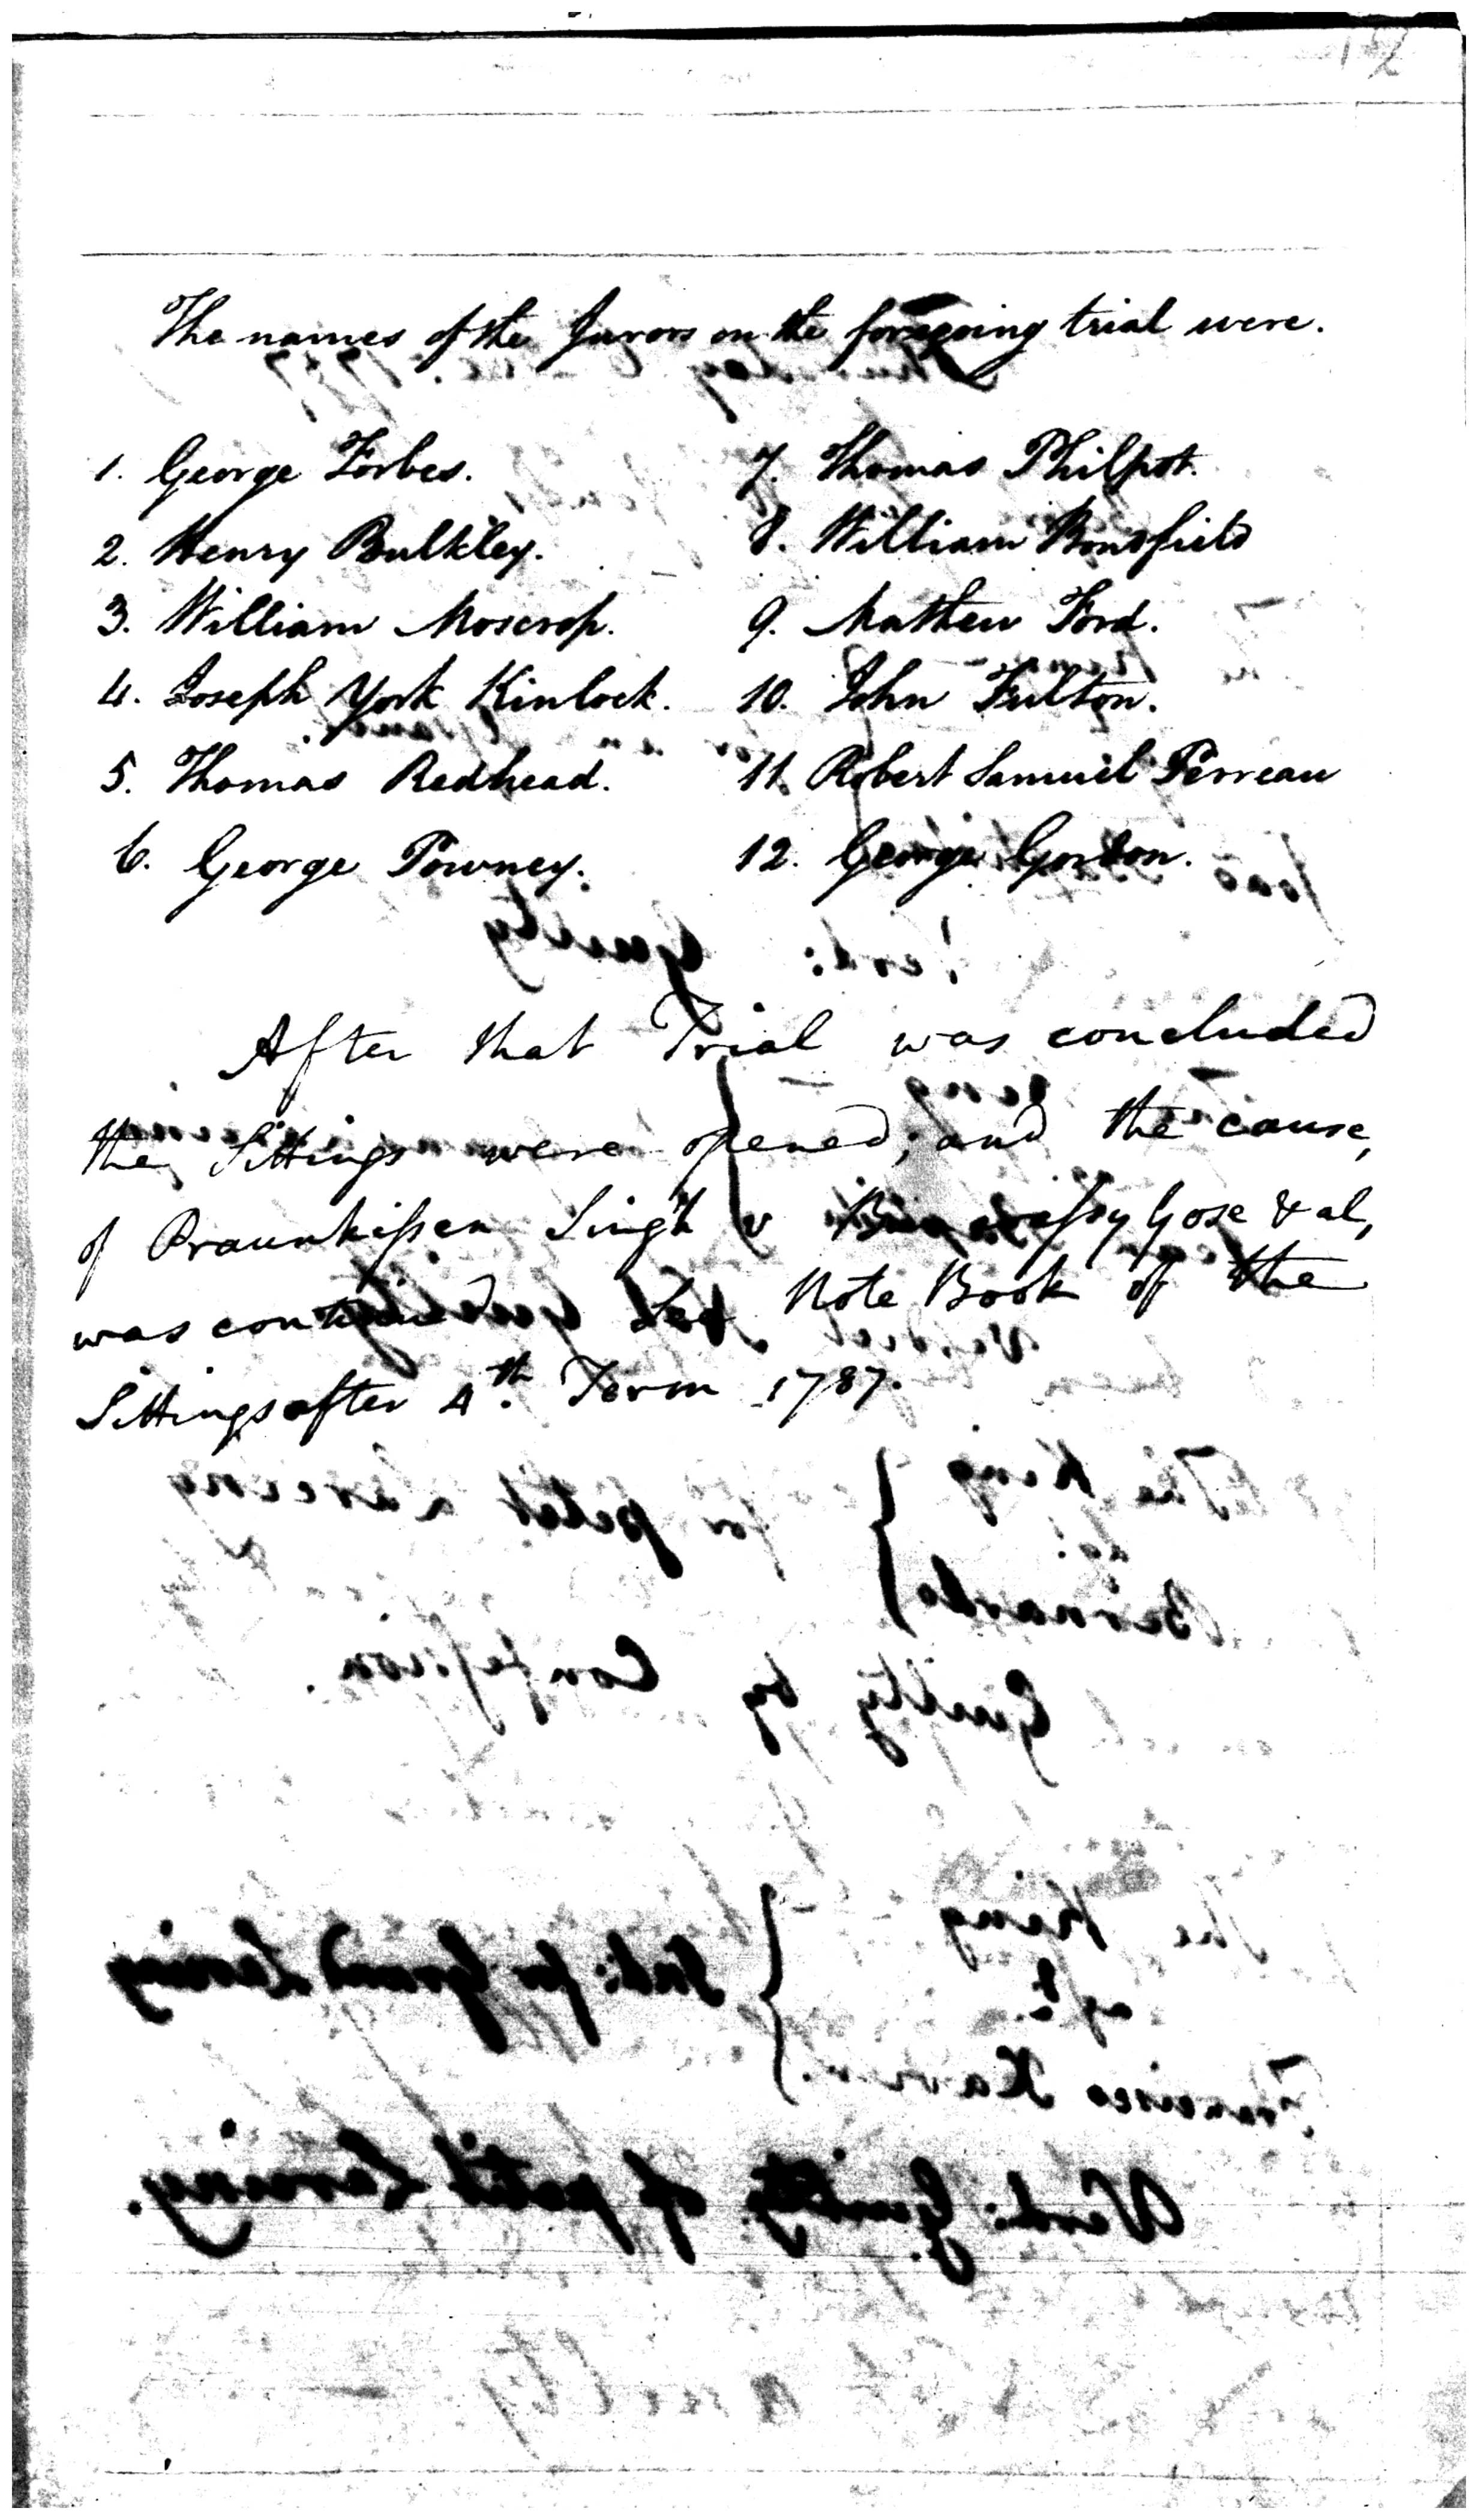 The names of the Jurors on the foregoing trial were.
1. George Forbes.
2. Henry Bulkley.
3. William Moscrop.
4. Joseph York Kinlock.
5. Thomas Redhead.
6. George Powney.
7. Thomas Philpot.
8. William Bonsfield
9. Mathew Ford.
10. John Fulton.
11 Robert Samuel Perreau
12. George Gordon.
After that Trial was concluded
the Sittings were opened, and the cause,
of Praunkissen Singh v Gose & al,
was continued See Note Book of the
Sittings after 4th. Term 1787.